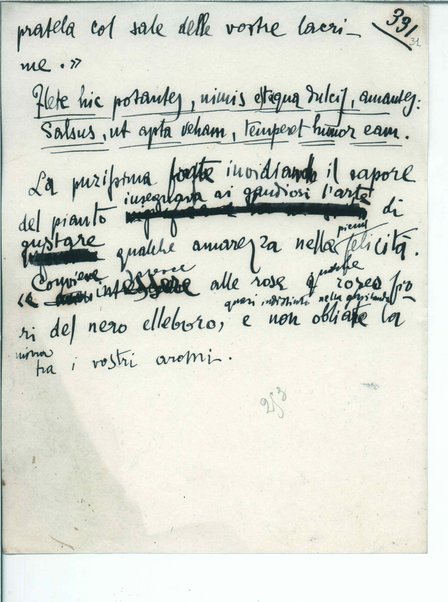 391
pratela col sale delle vostre lacri-
me.»
Flete hic potantes, nimis est aqua dulcis, amantes:
Salsus, ut apta veham, temperet humor eam.
La purissima fonte invidiando il sapore
del pianto insegnava ai gaudiosi l'arte di
gustare qualche amarezza nella piena felicità.
« Conviene alle rose qualche fio-
ri del nero elleboro, quasi indistinti nella ghirlanda e non obliate la
mirra tra i vostri aromi.
253